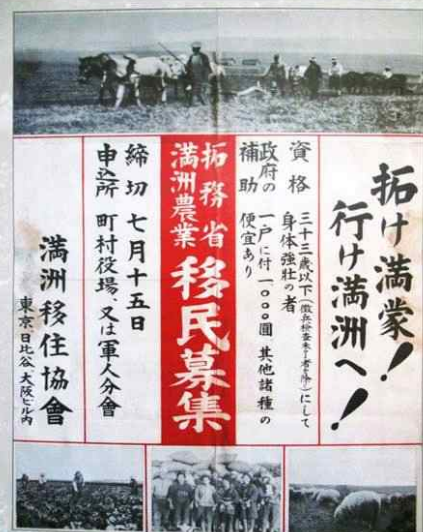 拓け満蒙！
行け満洲へ！
資格 三十三歳以下（徴兵検査未了者を除く）にして
身体強壮の者
政府の補助 一戸に付一〇〇〇圓、其他諸種の
便宜あり
拓務省
満洲農業
移民募集
締切 七月十五日
申込所 町村役場、又は軍人分會
満洲移住協會
東京日比谷 大阪ビル内